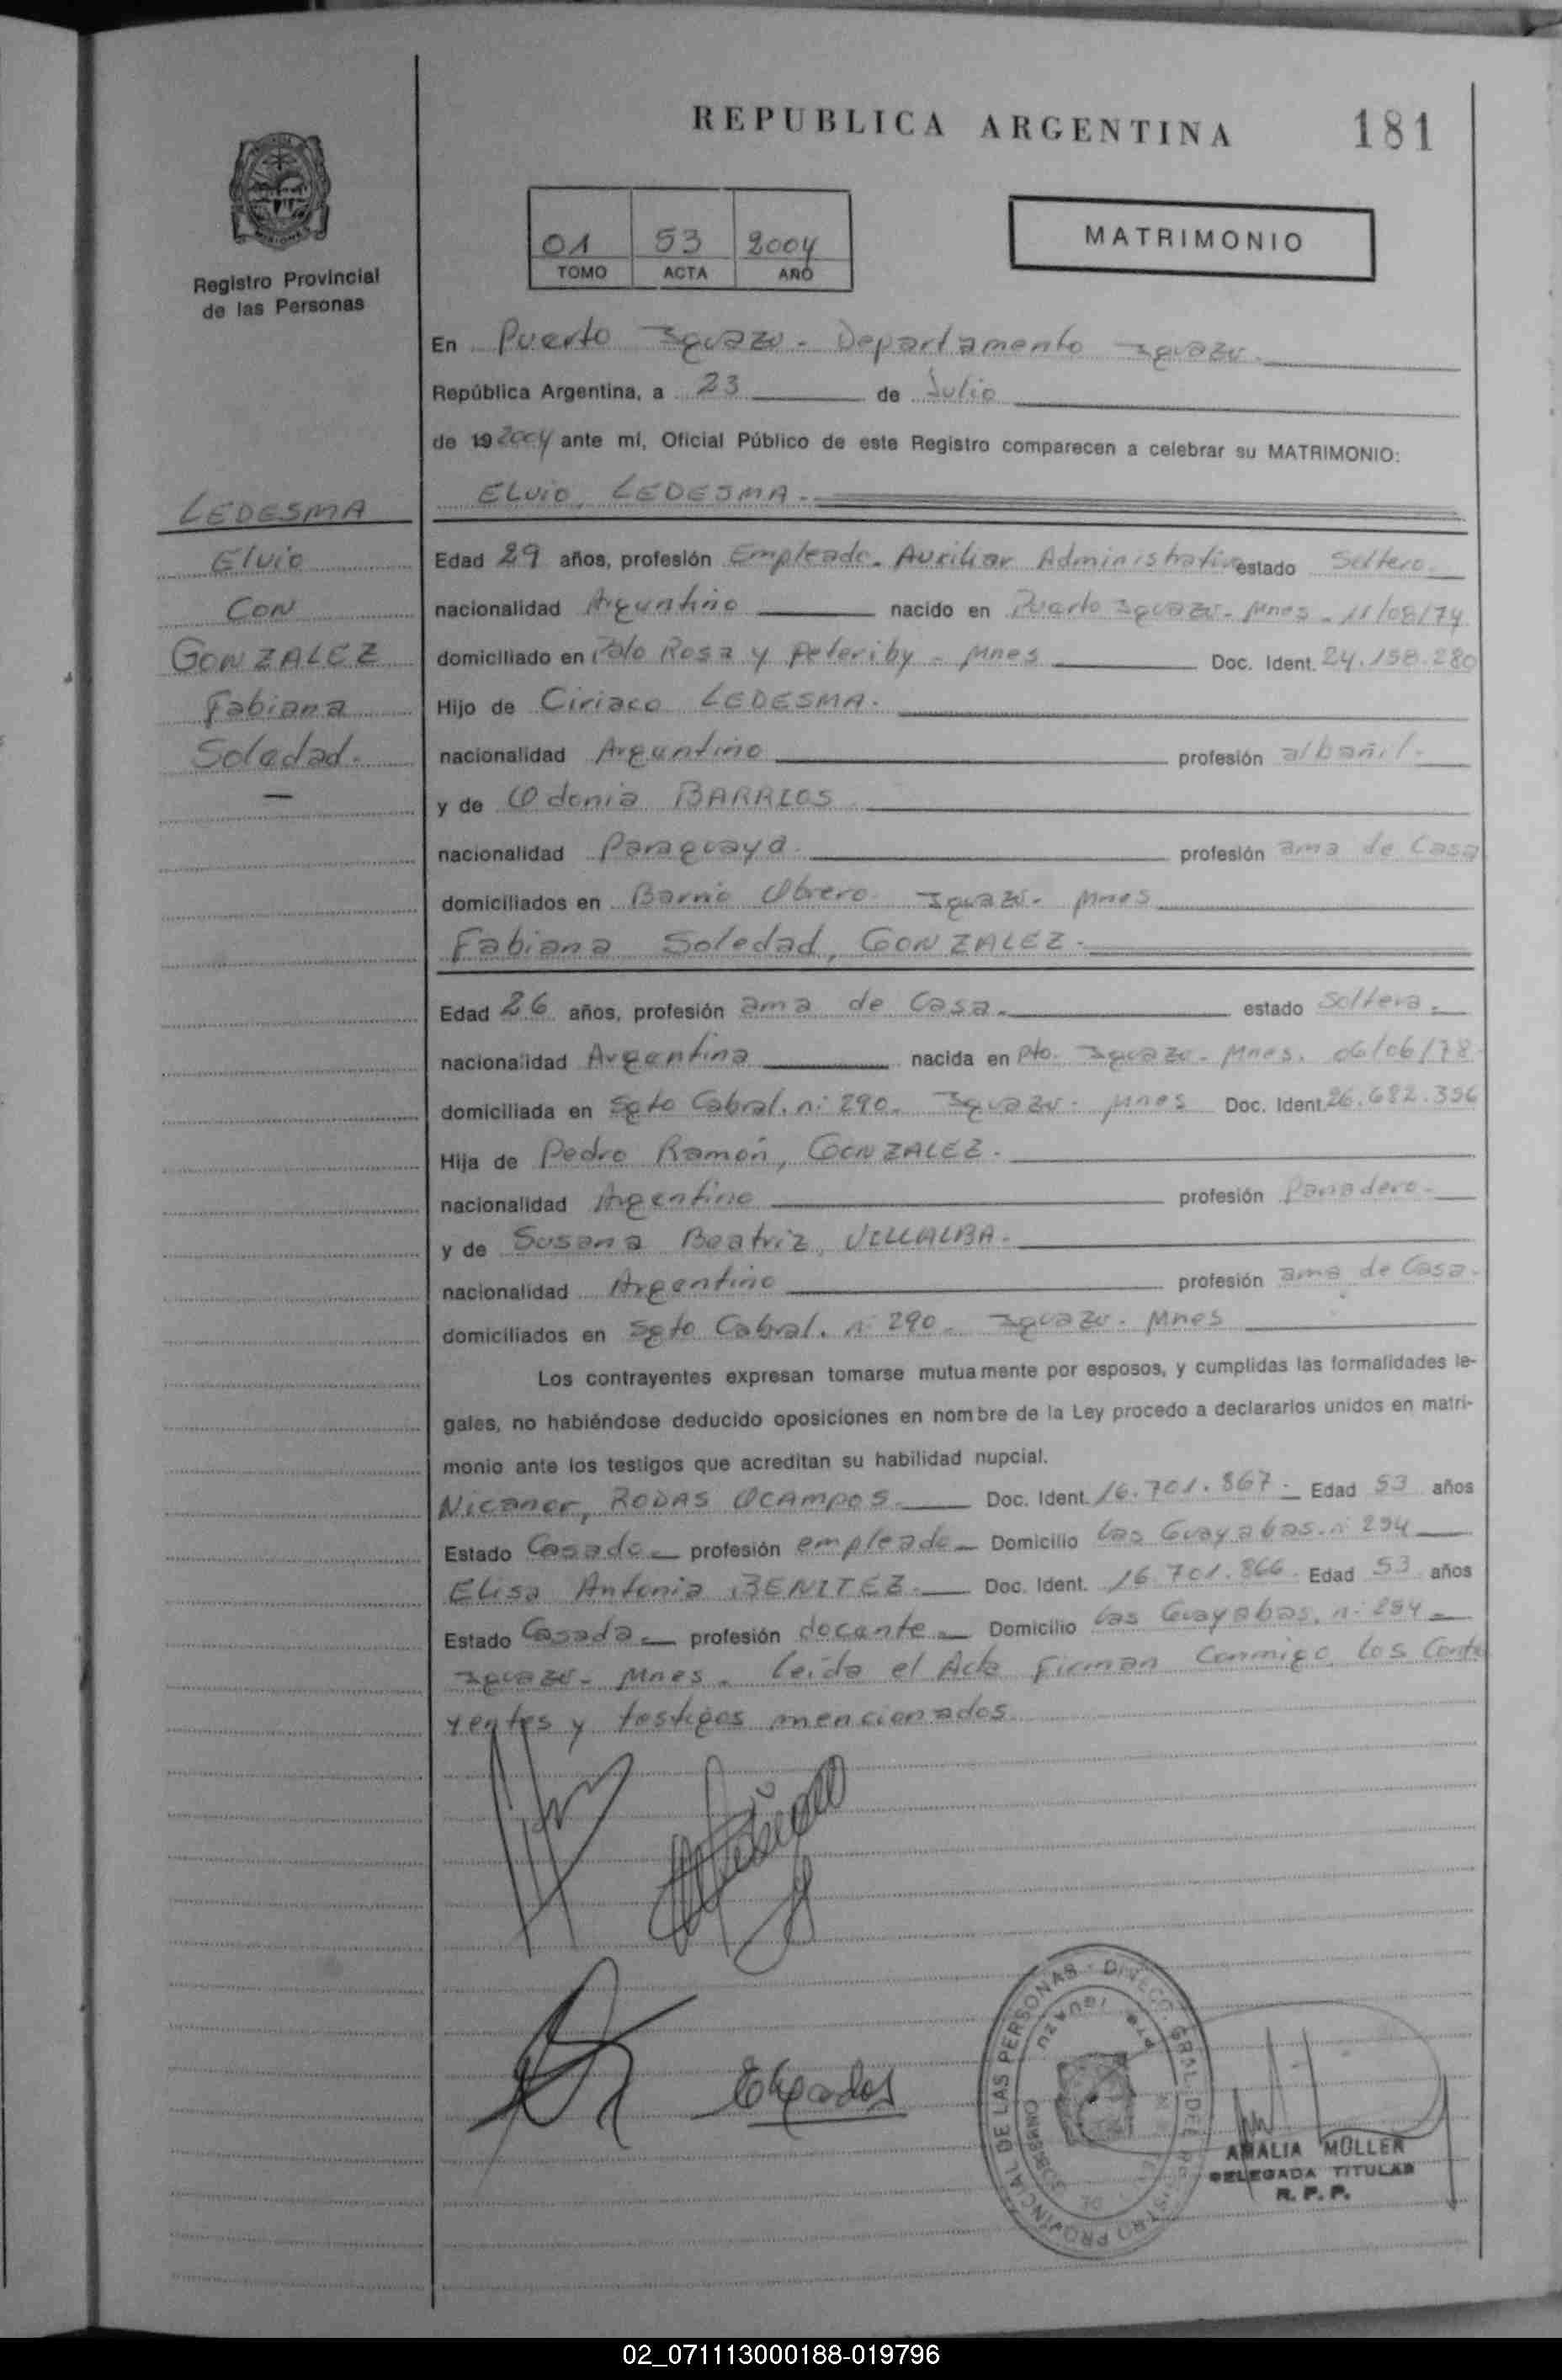 REPUBLICA ARGENTINA
181
Registro Provincial
de las Personas
01 53 2004
TOMO ACTA AÑO
MATRIMONIO
LEDESMA
Elvio
CON
GONZALEZ
Fabiana
Soledad.
En Puerto Iguazu - Departamento Iguazu.
República Argentina, a 23 de Julio
de 19 2004 ante mí, Oficial Público de este Registro comparecen a celebrar su MATRIMONIO:
ELVIO, LEDESMA.
Edad 29 años, profesión Empleado. Auxiliar Administrativo estado Soltero.
nacionalidad Argentino nacido en Puerto Iguazu - Mnes - 11/08/74
domiciliado en Palo Rosa y Peteriby - Mnes Doc. Ident. 24.158.280
Hijo de Ciriaco LEDESMA.
nacionalidad Argentino profesión albañil.
y de Odonia BARRIOS
nacionalidad Paraguaya. profesión ama de Casa
domiciliados en Barrio Obrero. Iguazu - Mnes
Fabiana Soledad, GONZALEZ.
Edad 26 años, profesión ama de Casa. estado Soltera.
nacionalidad Argentina nacida en Pto. Iguazu - Mnes. 06/06/78
domiciliada en Sgto Cabral. n: 290. Iguazu - Mnes Doc. Ident. 26.682.356
Hija de Pedro Ramón, GONZALEZ.
nacionalidad Argentino profesión Panadero.
y de Susana Beatriz, VILLALBA.
nacionalidad Argentino profesión ama de Casa.
domiciliados en Sgto Cabral. n: 290. Iguazu - Mnes
Los contrayentes expresan tomarse mutuamente por esposos, y cumplidas las formalidades le-
gales, no habiéndose deducido oposiciones en nombre de la Ley procedo a declararlos unidos en matri-
monio ante los testigos que acreditan su habilidad nupcial.
Nicanor, RODAS OCAMPOS. Doc. Ident. 16.701.867. Edad 53 años
Estado Casado profesión empleado Domicilio Las Guayabas. n: 294
Elisa Antonia BENITEZ. Doc. Ident. 16.701.866. Edad 53 años
Estado Casada profesión docente Domicilio Las Guayabas. n: 294
Iguazu - Mnes. Leída el Acta firman conmigo los Contra
yentes y testigos mencionados
DIRECC. GRAL. DEL REGISTRO PROVINCIAL DE LAS PERSONAS
PTO. IGUAZU
AMALIA MÜLLER
DELEGADA TITULAR
R. P. P.
02_071113000188-019796